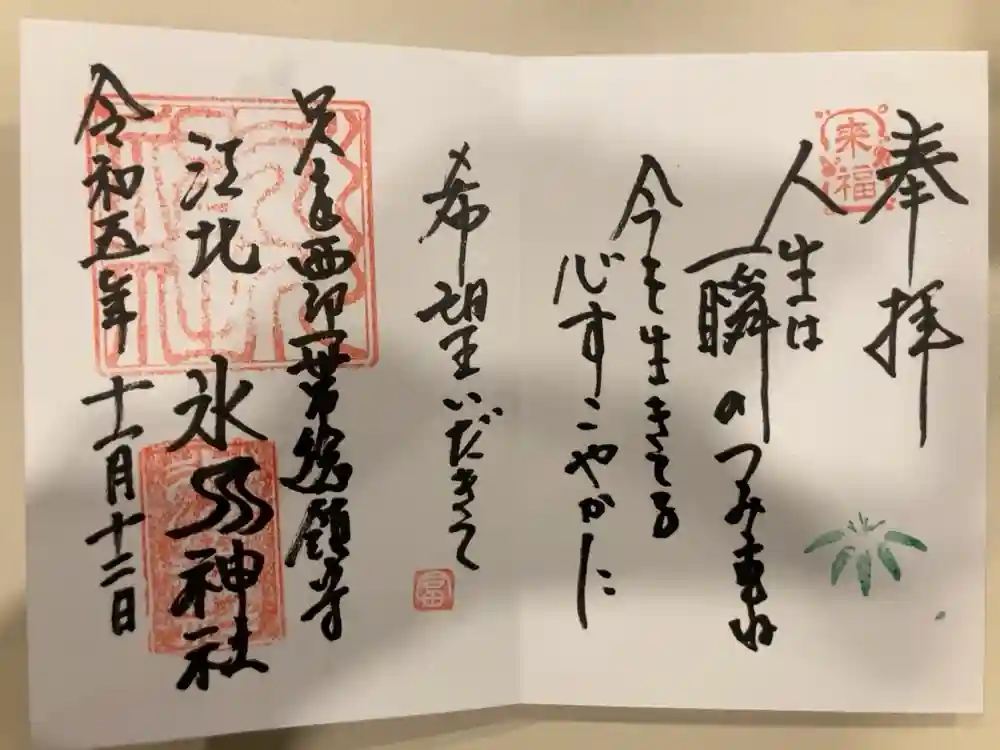 奉拝
来福
人生は
一瞬のつみ重ね
今を生きてる
心すこやかに
希望いだきて
足立西部一帯総鎮守
江北 氷川神社
令和五年 十一月十二日